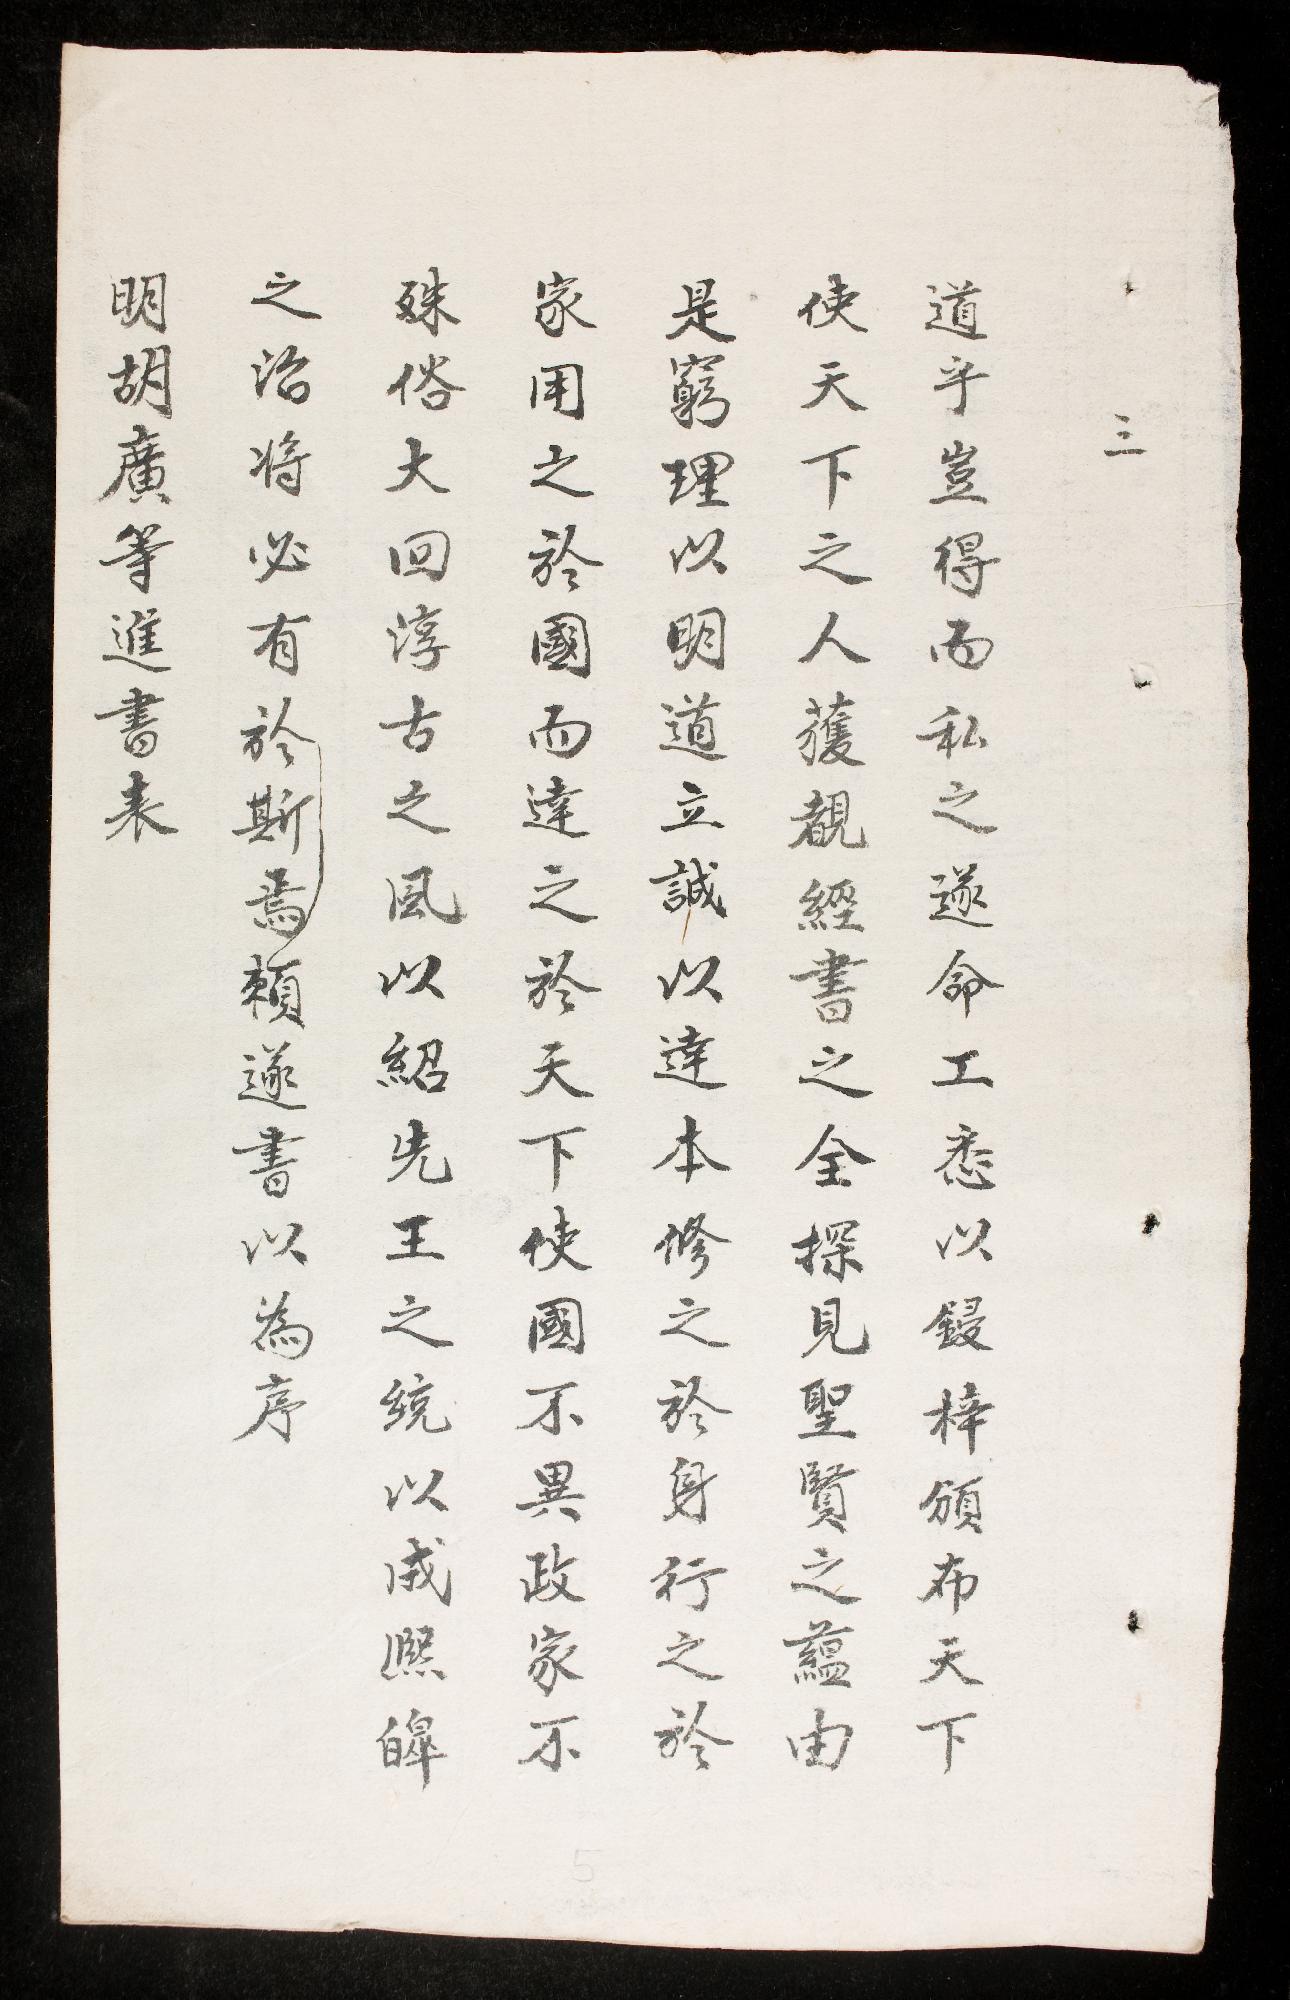 三
道乎豈得而私之遂命工悉以鋟梓頒布天下
使天下之人獲覩經書之全探見聖賢之蘊由
是窮理以明道立誠以達本修之於身行之於
家用之於國而達之於天下使國不異政家不
殊俗大回淳古之風以紹先王之統以成熙皥
之治將必有於斯焉賴遂書以為序
明胡廣等進書表
5